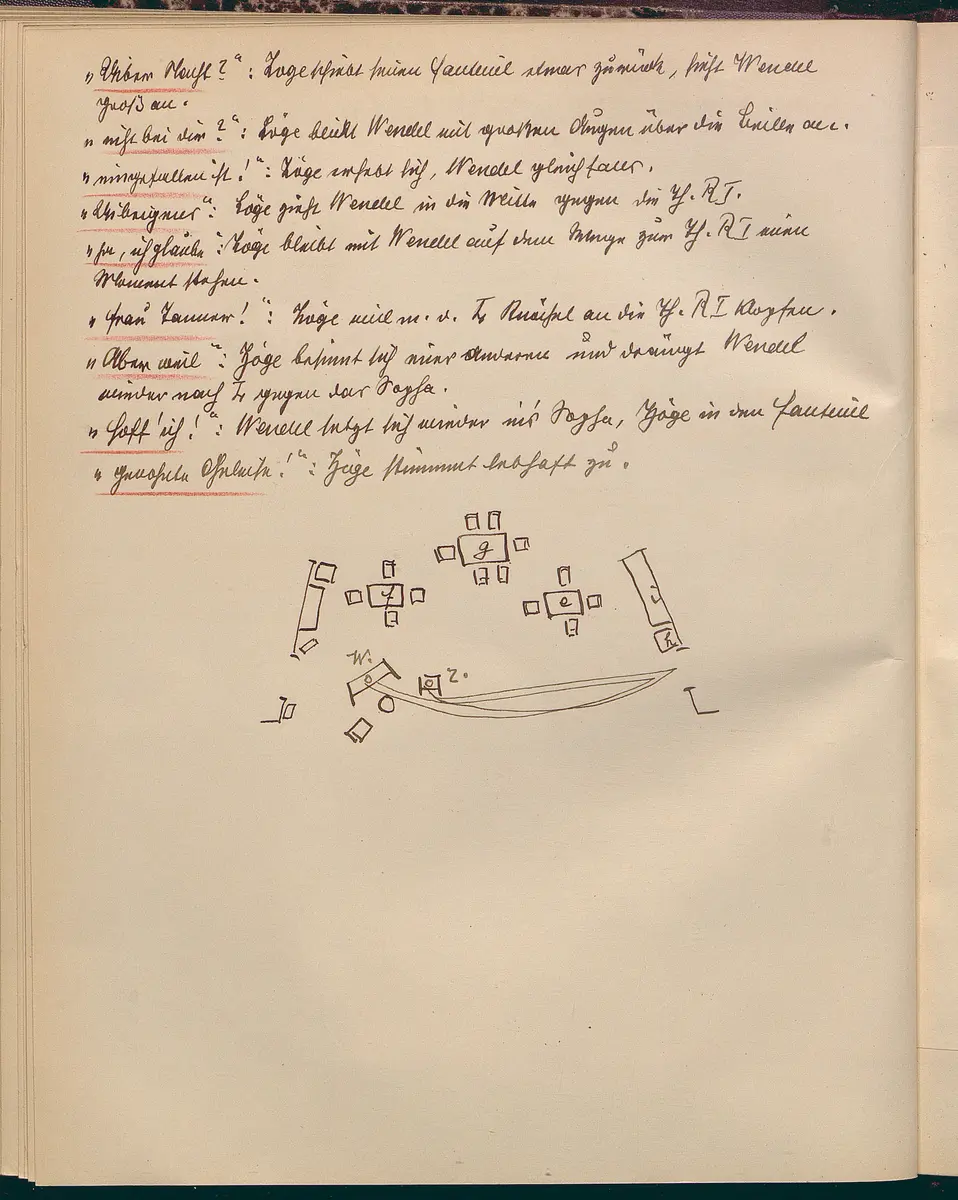 „Über Nacht?“: Löge schiebt seinen Fauteuil etwas zurück, sieht Wendel
groß an.
„nicht bei dir?“: Löge blickt Wendel mit großen Augen über die Brille an.
„eingefallen ist!“: Löge erhebt sich, Wendel gleichfalls.
„Übrigens“: Löge zieht Wendel in die Mitte gegen die Th. R I.
„ja, ich glaube“: Löge bleibt mit Wendel auf dem Wege zur Th. R I einen
Moment stehen.
„Frau Tanner!“: Löge will m. d. Knöchel an die Th. R I klopfen.
„Aber weil“: Löge besinnt sich einer anderen und drängt Wendel
wieder nach L gegen das Sopha.
„Hoff' ich!“: Wendel setzt sich wieder in's Sopha, Löge in den Fauteuil
„gewohnte Geleise!“: Löge stimmt lebhaft zu.
g
f
e
i
h
W.